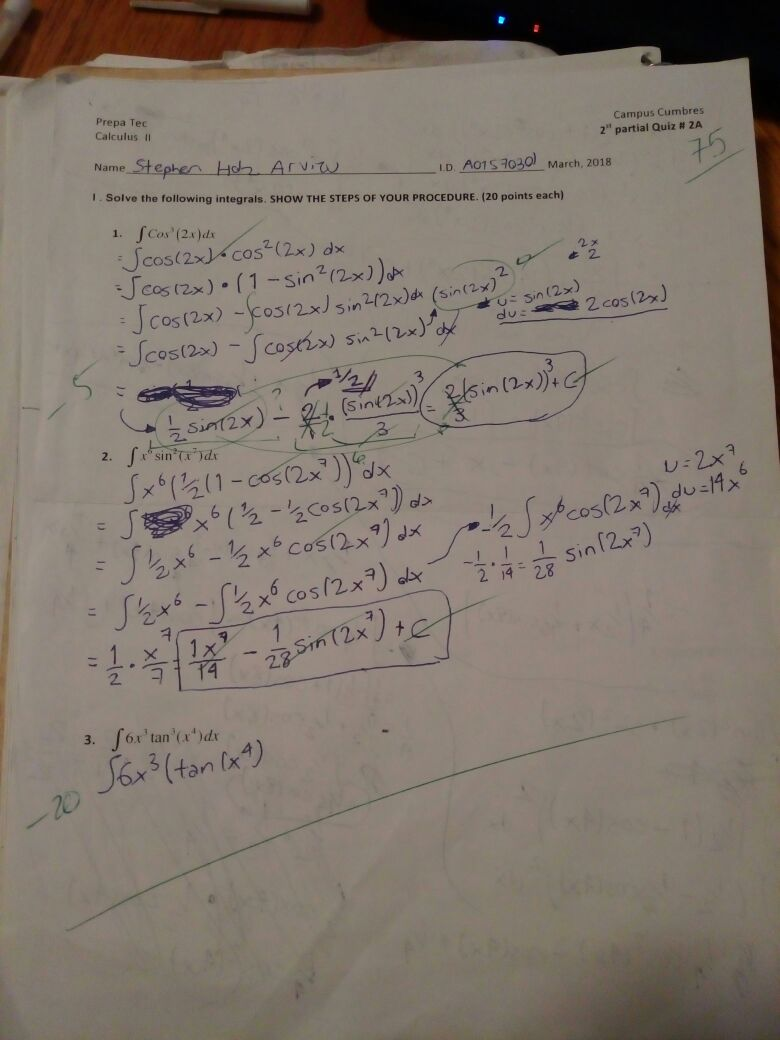 Prepa Tec
Calculus II
Campus Cumbres
2st partial Quiz # 2A
75
Name Stephen Hdz Arvizu I.D. A01570301 March, 2018
I. Solve the following integrals. SHOW THE STEPS OF YOUR PROCEDURE. (20 points each)
1. ∫Cos³(2x)dx
= ∫cos(2x) • cos²(2x) dx
= ∫cos(2x) • (1 - sin²(2x)) dx
= ∫cos(2x) - ∫cos(2x) sin²(2x) dx (sin(2x))²
= ∫cos(2x) - ∫cos(2x) sin²(2x) dx
2x
2
u = sin(2x)
du = 2cos(2x)
-5
= 1/2
1/2 sin(2x) - 1/2 • (sin(2x))³/3 = 2/3 (sin(2x))³ + C
2. ∫x⁶ sin²(x⁷)dx
∫x⁶(1/2(1 - cos(2x⁷)) dx
= ∫ x⁶(1/2 - 1/2cos(2x⁷)) dx
= ∫1/2x⁶ - 1/2x⁶ cos(2x⁷) dx
= ∫1/2x⁶ - ∫1/2x⁶ cos(2x⁷) dx
= 1/2 • x⁷/7 = 1x⁷/14 - 1/28 sin(2x⁷) + C
u = 2x⁷
du = 14x⁶
-1/2 ∫x⁶cos(2x⁷) dx
-1/2 • 1/14 = 1/28 sin(2x⁷)
3. ∫6x³tan³(x⁴)dx
∫6x³(tan(x⁴)
-20